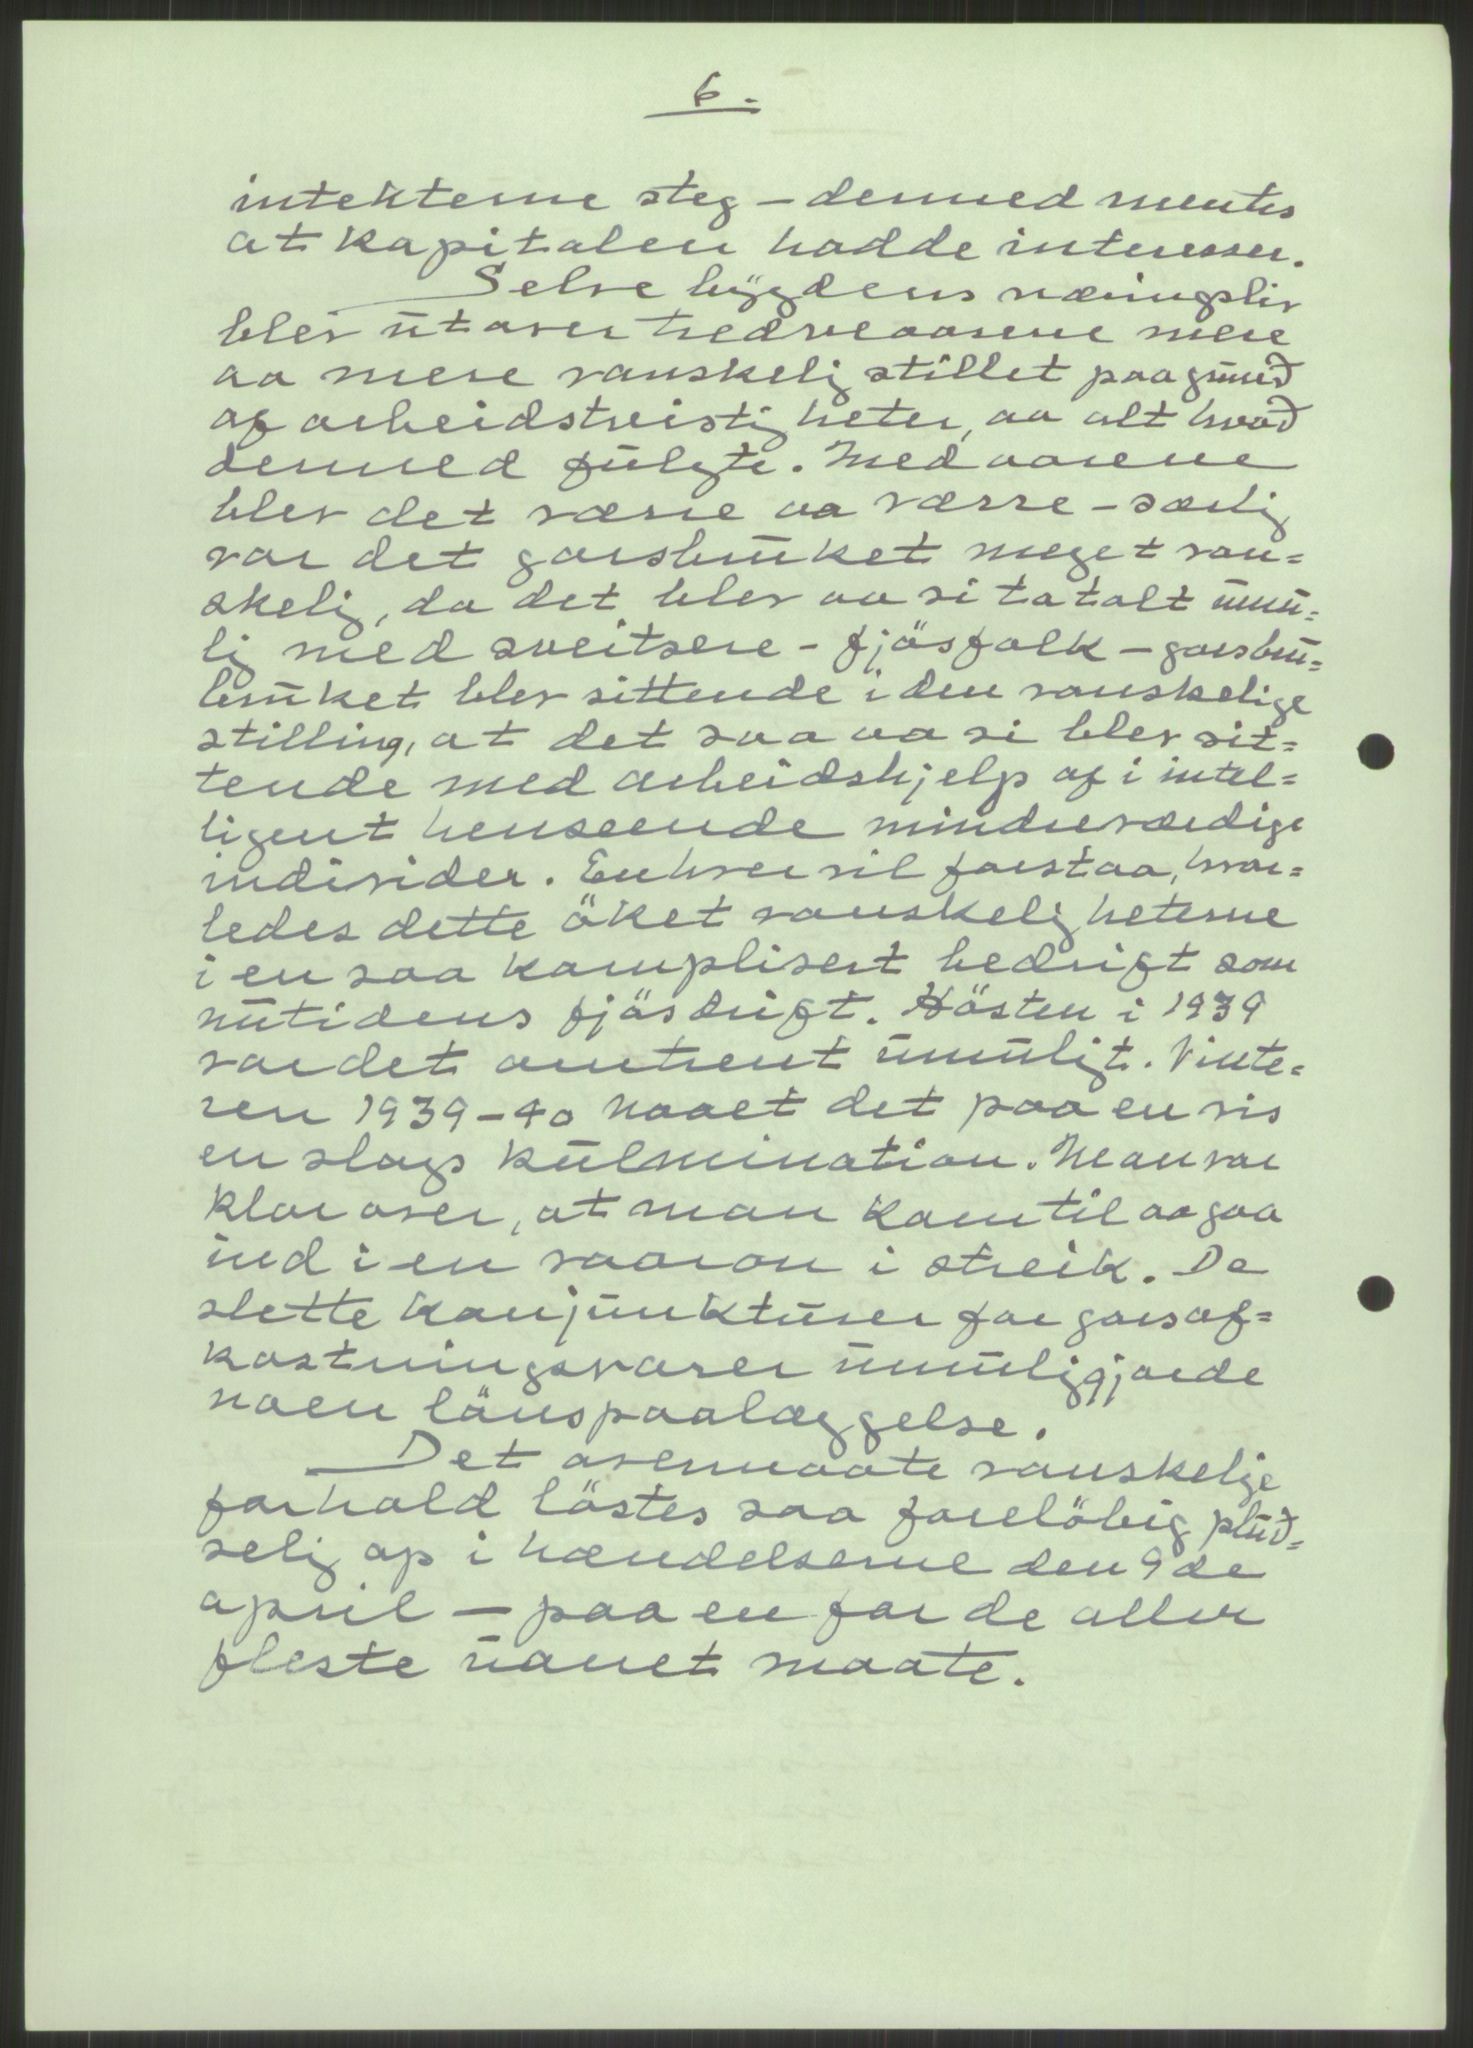 6.
intekterne steg - dermed mentes
at kapitalen hadde interesser.
Selve bygdens næringsliv
blev utover tredveaarene mere
aa mere vanskelig stillet paa grund
af arbeidstvistigheter, aa alt hvad
dermed fulgte. Med aarene
blev det værre aa værre - særlig
var det gårsbruket meget van=
skelig, da det blev aa si totalt umu=
lig med sveitsere - fjösfolk - gorsbru=
bruket blev sittende i den vanskelige
stilling, at det saa aa si blev sit=
tende med arbeidshjelp af i intel=
ligent henseende mindreværdige
individer. Enhver vil forstaa, hvor=
ledes dette öket vanskeligheterne
i en saa komplisert bedrift som
nutidens fjösdrift. Hösten i 1939
var det omtrent umuligt. Vinte=
ren 1939-40 naaet det paa en vis
en slags kulmination. Man var
klar over, at man kom til aa gaa
ind i en vaaron i streik. De
slette konjunkturer for gorsaf=
kastningsvarer umuliggjorde
noen lönspaalæggelse.
Det overmaate vanskelige
forhold löstes saa foreløbig plud=
selig op i hændelserne den 9de
april - paa en for de aller
fleste uanet maate.